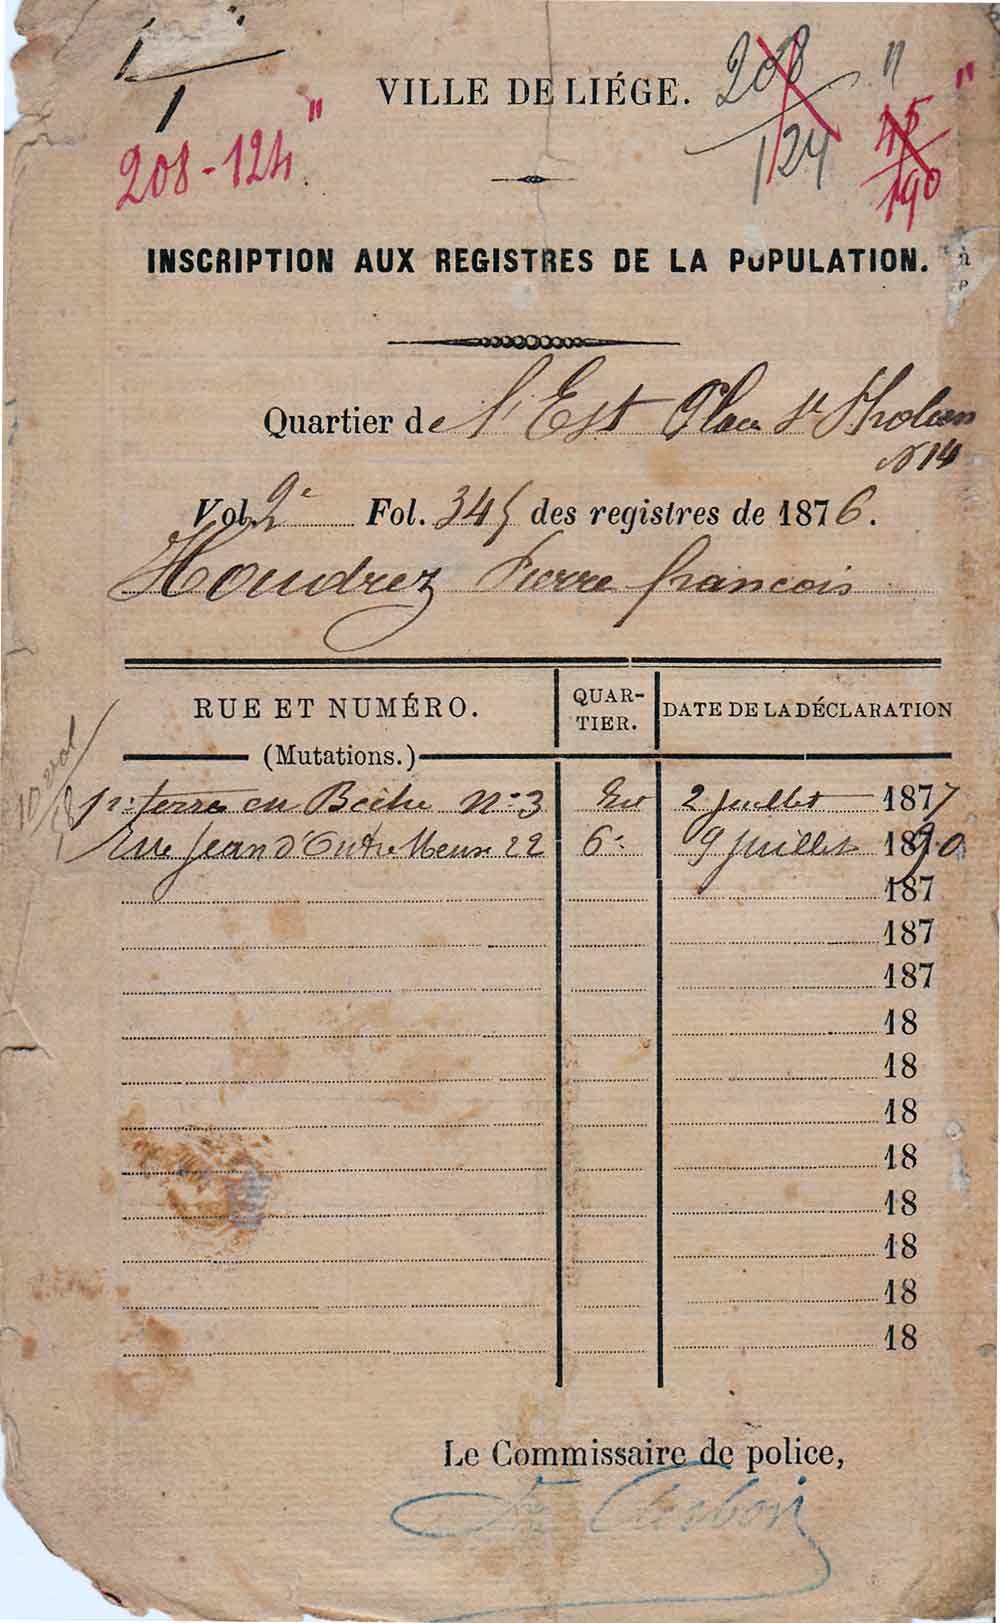 1
1
208-124"
VILLE DE LIÉGE.
208 "
124
45 "
190
INSCRIPTION AUX REGISTRES DE LA POPULATION.
à
Quartier de l'Est Place St Pholien
N 14
Vol. 2e Fol. 345 des registres de 1876.
Houdrez Pierre francois
RUE ET NUMÉRO. QUAR-TIER. DATE DE LA DÉCLARATION
(Mutations.)
10 vol
en Bèche No 3 Est 2 juillet 1877
Rue Jean d'Outre Meuse 22 6e 9 juillet 1890
187
187
187
18
18
18
18
18
18
18
18
Le Commissaire de police,